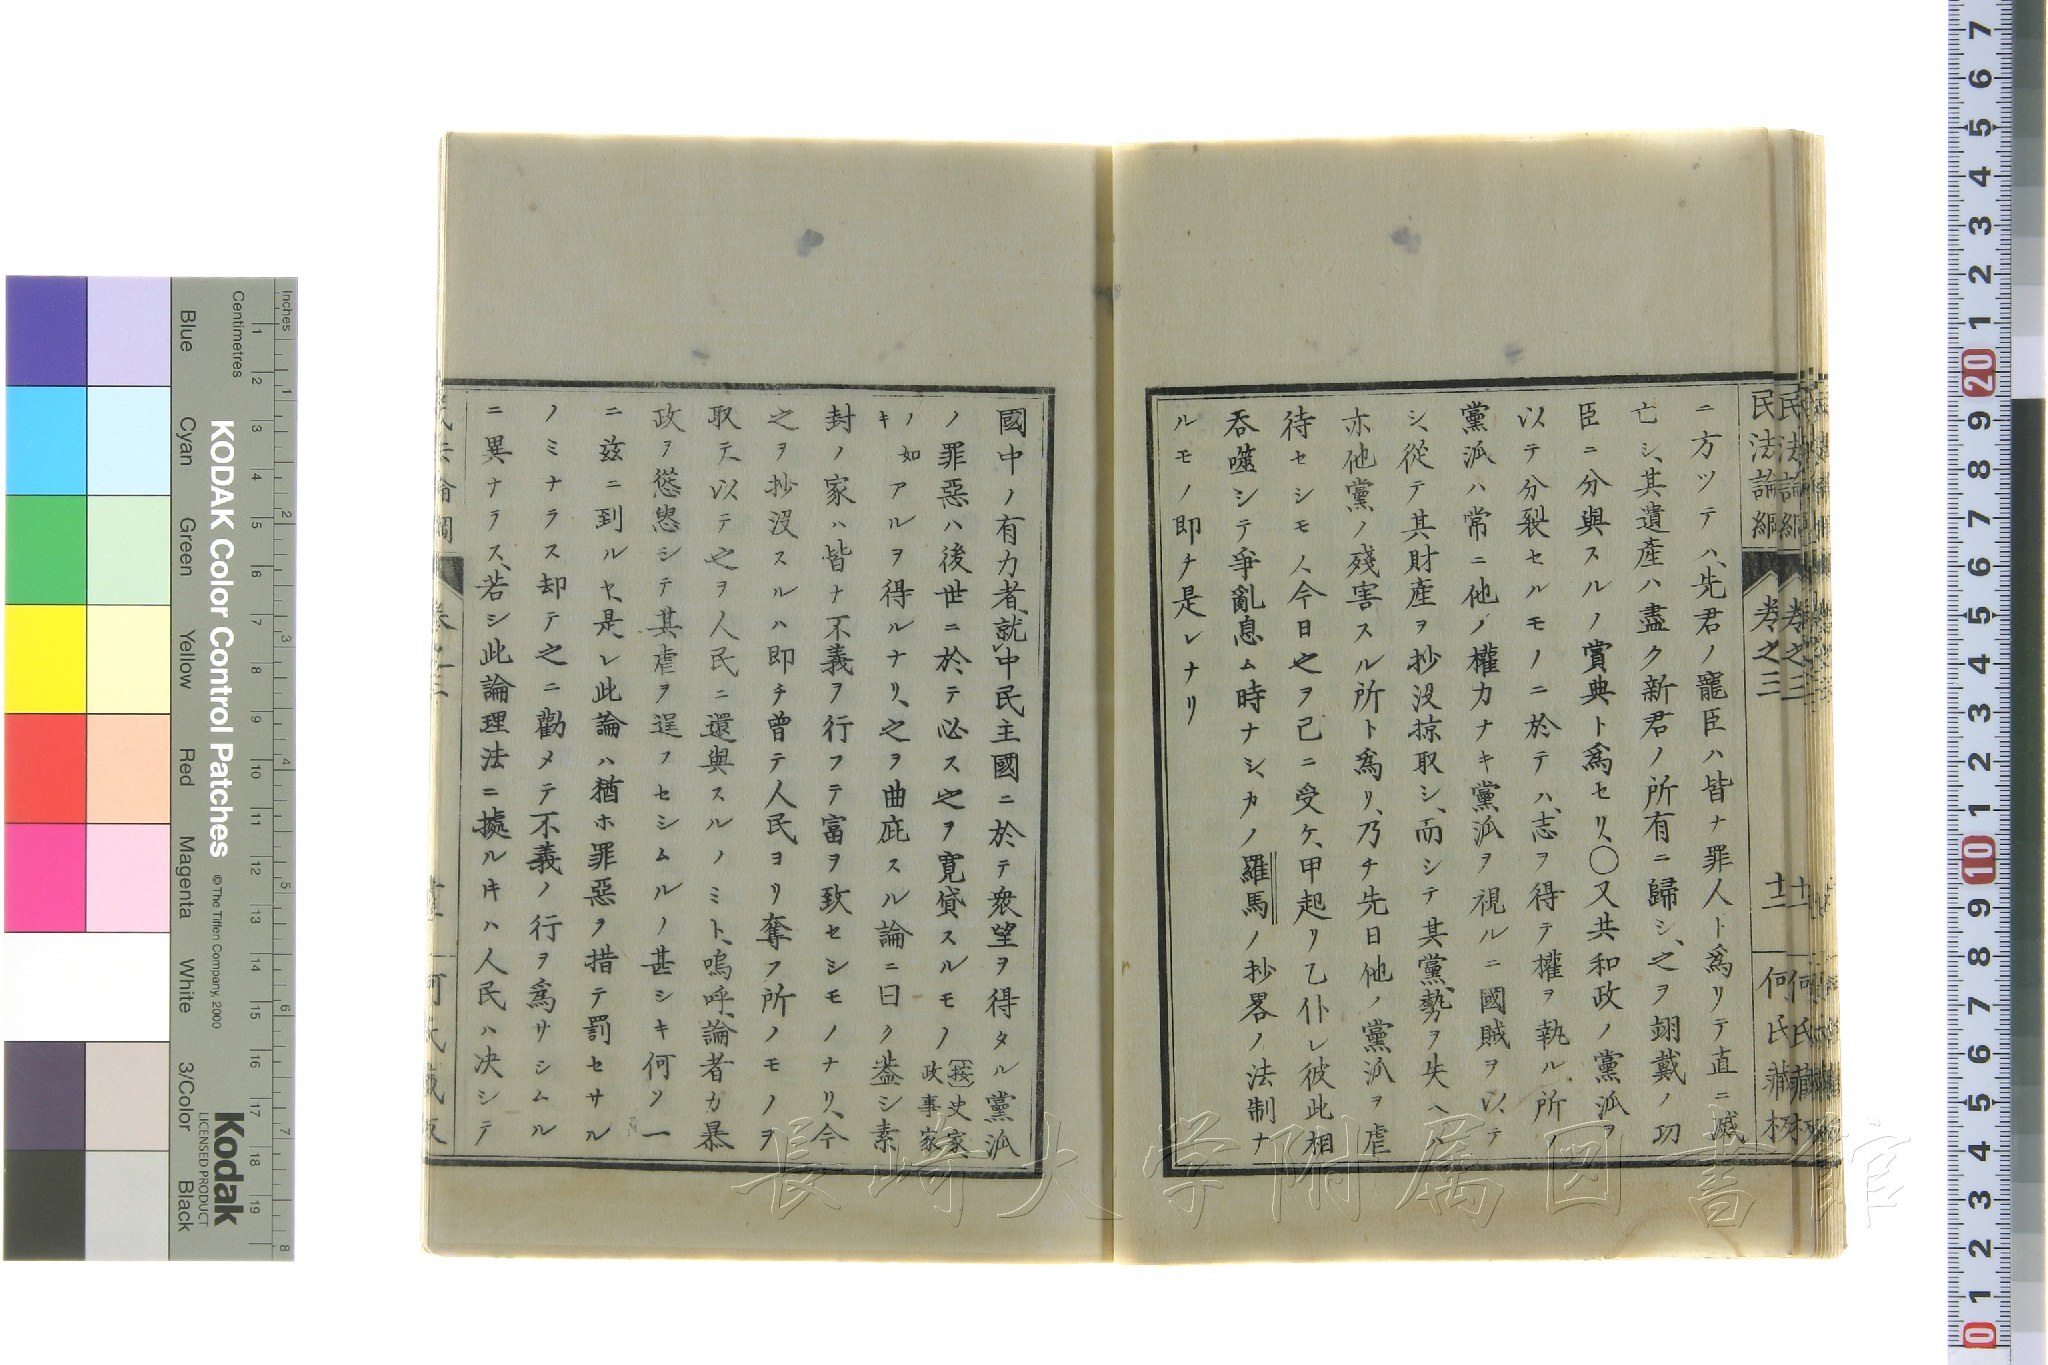 民法論綱
卷之三
十二
何氏藏板
ニ方ツテハ、先君ノ寵臣ハ皆ナ罪人ト爲リテ直ニ滅
亡シ、其遺產ハ盡ク新君ノ所有ニ歸シ、之ヲ翊戴ノ功
臣ニ分與スルノ賞典ト爲セリ、〇又共和政ノ黨派ヲ
以テ分裂セルモノニ於テハ、志ヲ得テ權ヲ執ル所ノ
黨派ハ常ニ他ノ權力ナキ黨派ヲ視ルニ國賊ヲ以テ
シ、從テ其財產ヲ抄沒掠取シ、而シテ其黨勢ヲ失ヘハ
亦他黨ノ殘害スル所ト爲リ、乃チ先日他ノ黨派ヲ虐
待セシモノ今日之ヲ己ニ受ケ、甲起リ乙仆レ彼此相
呑噬シテ爭亂息ム時ナシ、カノ羅馬ノ抄畧ノ法制ナ
ルモノ即チ是レナリ
國中ノ有力者、就中民主國ニ於テ衆望ヲ得タル黨派
ノ罪惡ハ後世ニ於テ必ス之ヲ寛貸スルモノ按史家政事家
ノ如キアルヲ得ルナリ、之ヲ曲庇スル論ニ曰ク蓋シ素
封ノ家ハ皆ナ不義ヲ行フテ富ヲ致セシモノナリ、今
之ヲ抄沒スルハ即チ曾テ人民ヨリ奪フ所ノモノヲ
取テ、以テ之ヲ人民ニ還與スルノミト、嗚呼、論者カ暴
政ヲ慫慂シテ其虐ヲ逞フセシムルノ甚シキ何ソ一
ニ玆ニ到ルヤ、是レ此論ハ猶ホ罪惡ヲ措テ罰セサル
ノミナラス却テ之ニ勸メテ不義ノ行ヲ爲サシムル
ニ異ナラス、若シ此論理法ニ據ル𪜈ハ人民ハ决シテ
長崎大学附属図書館
KODAK Color Control Patches
© The Tiffen Company, 2000
Kodak
LICENSED PRODUCT
Inches
Centimetres
Blue
Cyan
Green
Yellow
Red
Magenta
White
3/Color
Black